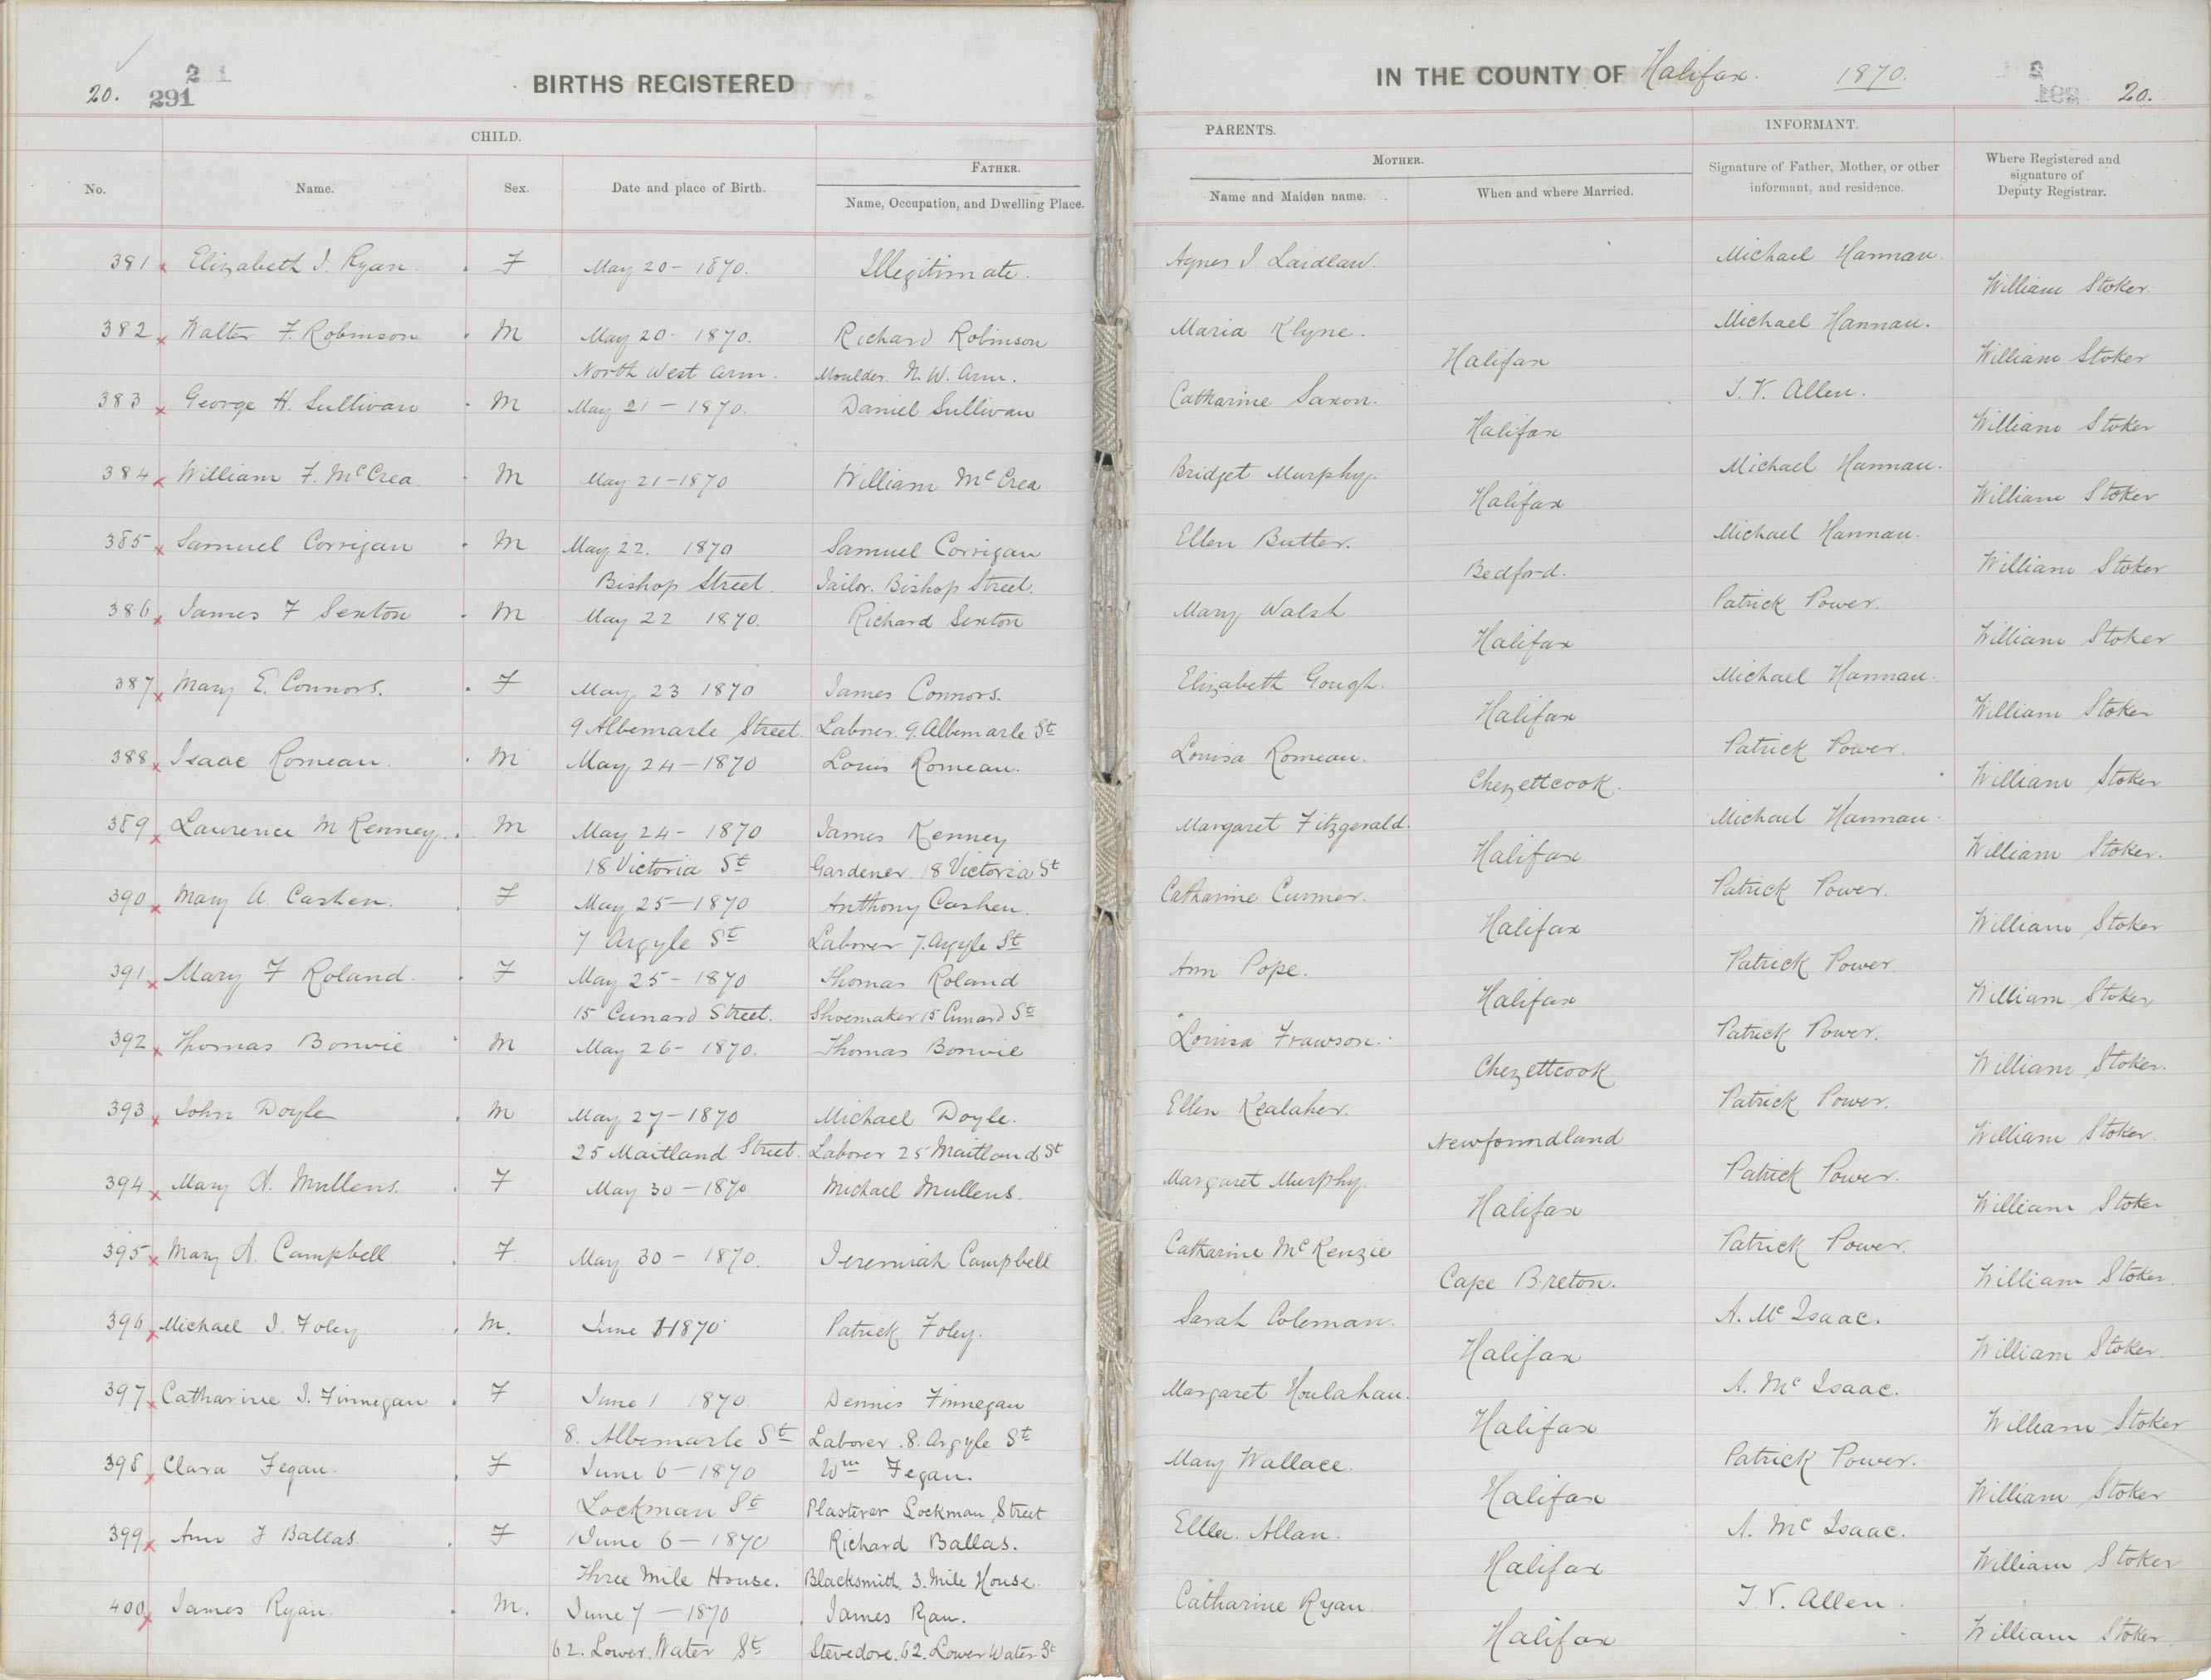 20. 291 201
BIRTHS REGISTERED
IN THE COUNTY OF Halifax. 1870. 20.
CHILD.
PARENTS.
INFORMANT.
No.
Name.
Sex.
Date and place of Birth.
FATHER.
Name, Occupation, and Dwelling Place.
MOTHER.
Name and Maiden name.
When and where Married.
Signature of Father, Mother, or other
informant, and residence.
Where Registered and
signature of
Deputy Registrar.
381 Elizabeth J. Ryan. F May 20 - 1870. Illegitimate. Agnes J. Laidlaw. Michael Hannan.
William Stoker.
382 Walter F. Robinson M May 20. 1870. Richard Robinson Maria Klyne. Michael Hannan.
North West Arm. Moulder. N. W. Arm. Halifax William Stoker
383 George H. Sullivan M May 21 - 1870. Daniel Sullivan Catharine Saxon. J. V. Allen.
Halifax William Stoker
384 William F. McCrea M May 21 - 1870 William McCrea Bridget Murphy. Michael Hannan.
Halifax William Stoker
385 Samuel Corrigan M May 22. 1870 Samuel Corrigan Ellen Butler. Michael Hannan.
Bishop Street. Tailor. Bishop Street. Bedford. William Stoker
386 James F Sexton M May 22 1870. Richard Sexton Mary Walsh Patrick Power.
Halifax William Stoker
387 Mary E. Connors. F May 23 1870 James Connors. Elizabeth Gough. Michael Hannan.
9 Albemarle Street. Laborer. 9. Albemarle St Halifax William Stoker
388 Isaac Romeau. M May 24 - 1870 Louis Romeau. Louisa Romeau. Patrick Power.
Chezettcook. William Stoker
389 Lawrence M Kenney. M May 24 - 1870 James Kenney Margaret Fitzgerald. Michael Hannan.
18 Victoria St Gardener. 18 Victoria St Halifax William Stoker.
390 Mary A. Cashen. F May 25 - 1870 Anthony Cashen. Catharine Patrick Power.
7 Argyle St Laborer 7. Argyle St Halifax William Stoker
391 Mary F Roland. F May 25 - 1870 Thomas Roland Ann Pope. Patrick Power.
15 Cunard Street. Shoemaker 15 Cunard St Halifax William Stoker
392 Thomas Bonvie M May 26 - 1870. Thomas Bonvie Louisa Frawson. Patrick Power.
Chezettcook William Stoker.
393 John Doyle M May 27 - 1870 Michael Doyle. Ellen Kealaher. Patrick Power.
25 Maitland Street. Laborer 25 Maitland St Newfoundland William Stoker.
394 Mary A. Mullens. F May 30 - 1870 Michael Mullens. Margaret Murphy. Patrick Power.
Halifax William Stoker
395 Mary A. Campbell F. May 30 - 1870. Jeremiah Campbell Catharine McKenzie Patrick Power.
Cape Breton. William Stoker.
396 Michael J. Foley. M. June 1 1870 Patrick Foley. Sarah Coleman. A. McIsaac.
Halifax William Stoker.
397 Catharine J. Finnegan F June 1 1870. Dennis Finnegan Margaret Houlahan. A. McIsaac.
8. Albemarle St Laborer. 8. Argyle St Halifax William Stoker
398 Clara Fegan. F June 6 - 1870 Wm Fegan. Mary Wallace. Patrick Power.
Lockman St Plasterer Lockman Street Halifax William Stoker
399 Ann J Ballas. F June 6 - 1870 Richard Ballas. Ellen Allan. A. McIsaac.
Three Mile House. Blacksmith. 3. Mile House. Halifax William Stoker
400 James Ryan. M. June 7 - 1870 James Ryan. Catharine Ryan J. V. Allen.
62. Lower Water St Stevedore. 62. Lower Water St Halifax William Stoker